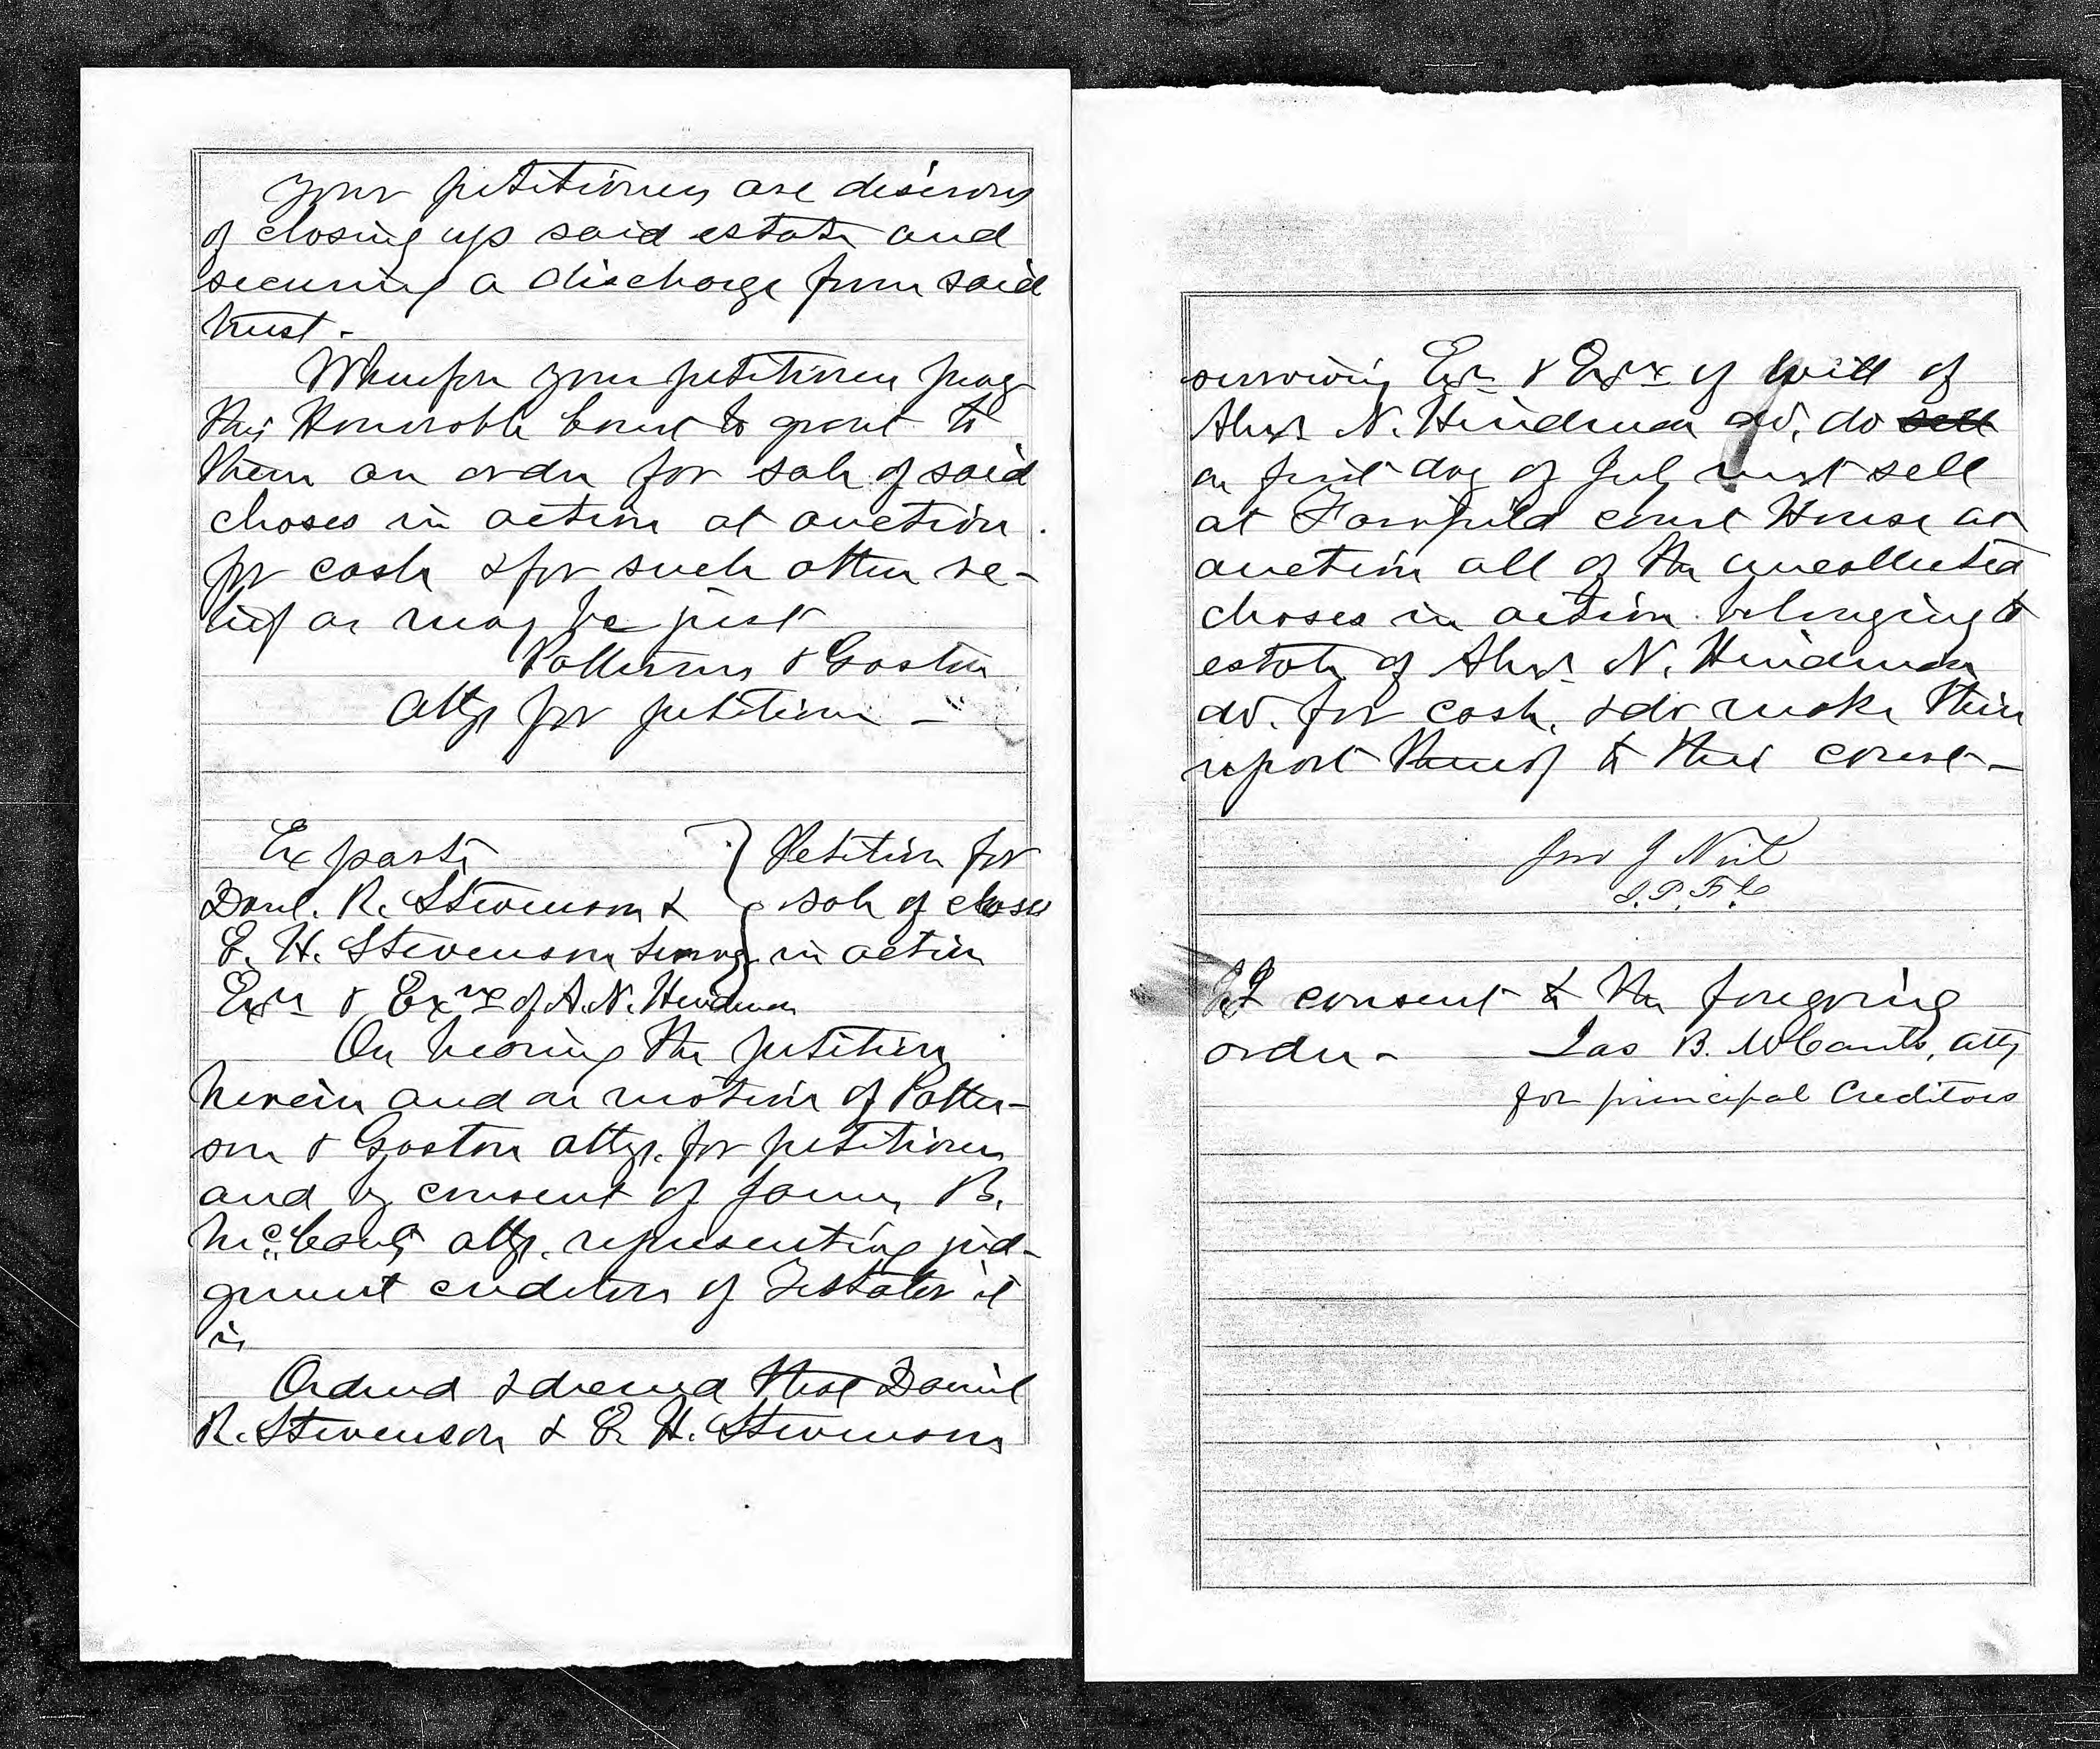 Your petitioners are desirous
of closing up said estate and
securing a discharge from said
trust.
Wherefore your petitioners pray
this Honorable Court to grant to
them an order for sale of said
choses in action at auction
for cash & for such other re-
lief as may be just
Patterson & Gaston
Attys for petitioners -
Ex parte
Danl. R. Stevenson &
E. H. Stevenson survg
Exr & Exrx of A. N. Hindman
Petition for
sale of choses
in action
On hearing the petition
herein and on motion of Patter-
son & Gaston attys. for petitioners
and by consent of James B.
McCants atty. representing jud-
gment creditors of Testator it
is
Ordered & decreed that Daniel
R. Stevenson & E. H. Stevenson
surviving Exr & Exrx of will of
Alexr N. Hindman decd. do sell
on first day of next sell
at Fairfield Court House at
auction all of the uncollected
choses in action belonging to
estate of Alexr N. Hindman
decd. for cash, & do make their
report thereof to this court -
Jno J Neil
J.P.F.C
I consent to the foregoing
order - Jas B. McCants, atty
for principal Creditors